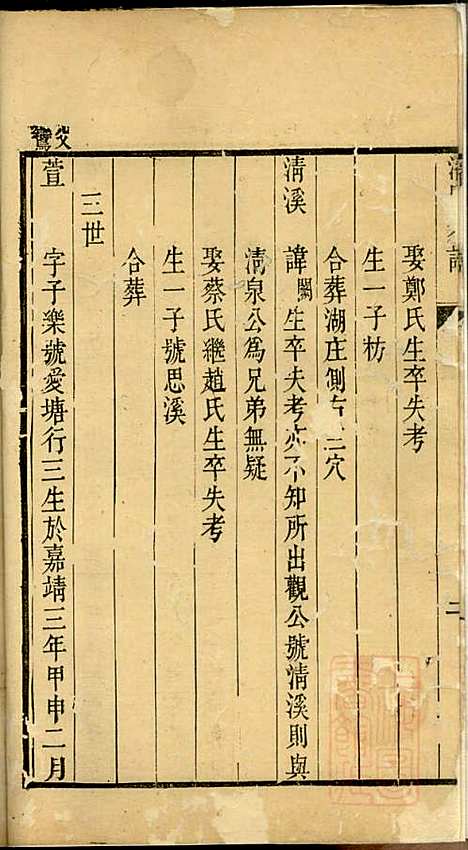 娶鄭氏生卒失考
生一子枋
合葬湖庄側 三穴
清溪 諱闕生卒失考亦不知所出觀公號清溪則與
清泉公爲兄弟無疑
娶蔡氏繼趙氏生卒失考
生一子號思溪
合葬
三世
萱 字子樂號愛塘行三生於嘉靖三年甲申二月
二